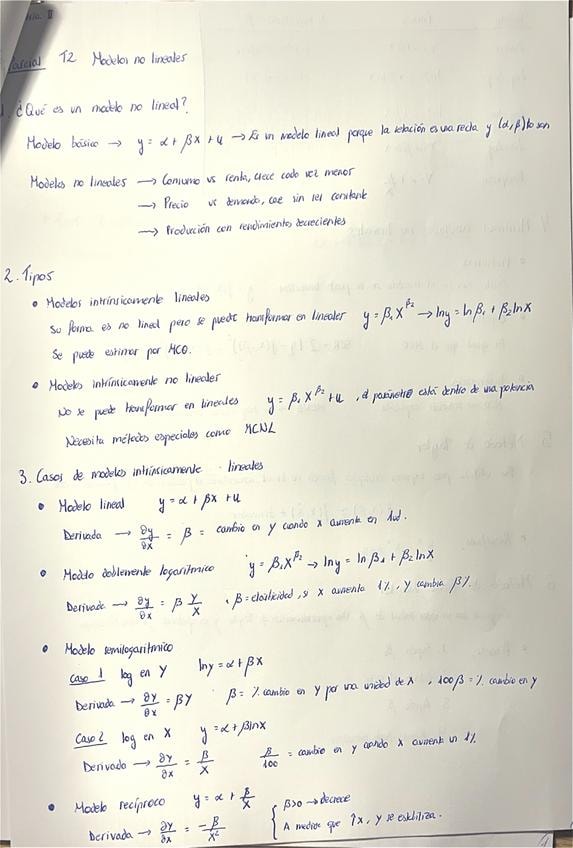 Parcial T2 Modelos no lineales
1. ¿Qué es un modelo no lineal?
Modelo básico → y = α + βx + u → Es un modelo lineal porque la relación es una recta y (α, β) lo son
Modelos no lineales → Consumo vs renta, crece cada vez menor
→ Precio vs demanda, cae sin ser constante
→ Producción con rendimientos decrecientes
2. Tipos
• Modelos intrínsicamente lineales
Su forma es no lineal pero se puede transformar en lineales y = β₁ X^β₂ → ln y = ln β₁ + β₂ ln X
Se puede estimar por MCO.
• Modelos intrínsicamente no lineales
No se puede transformar en lineales y = β₁ X^β₂ + u , el parámetro está dentro de una potencia
Necesita métodos especiales como MCNL
3. Casos de modelos intrínsicamente lineales
• Modelo lineal y = α + βx + u
Derivada → ∂y/∂x = β = cambio en y cuando x aumenta en 1ud.
• Modelo doblemente logarítmico y = β₁X^β₂ → ln y = ln β₁ + β₂ ln X
Derivada → ∂y/∂x = β Y/X , β = elasticidad, si X aumenta 1%, Y cambia β%
• Modelo semilogarítmico
Caso 1 log en Y ln y = α + βX
Derivada → ∂Y/∂x = βY β = % cambio en Y por una unidad de X , 100β = % cambio en y
Caso 2 log en X y = α + β ln x
Derivado → ∂Y/∂x = β/X β/100 = cambio en y cuando x aumenta un 1%
• Modelo recíproco y = α + β/X
Derivada → ∂Y/∂x = -β/X² { β>0 → decrece
A medida que ↑x, y se estabiliza.